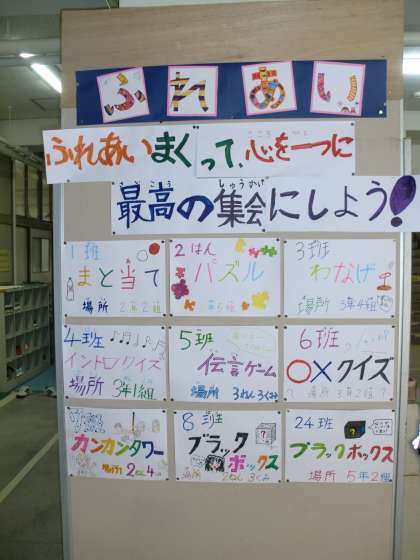 ふれあい
ふれあいまくって、心を一つに
さいこう しゅうかい
最高の集会にしよう!
1班
まと当て
場所 2年2組
2はん
パズル
3班
わなげ
場所 3年4組
4班
イントロクイズ
場所 3年1組
5班
伝言ゲーム
場所 3ねん3くみ
6班
○×クイズ
場所 3年2組
カンカンタワー
場所 2ねん4くみ
8班
ブラックボックス
場所 2ねん3くみ
24班
ブラックボックス
場所 5年2組